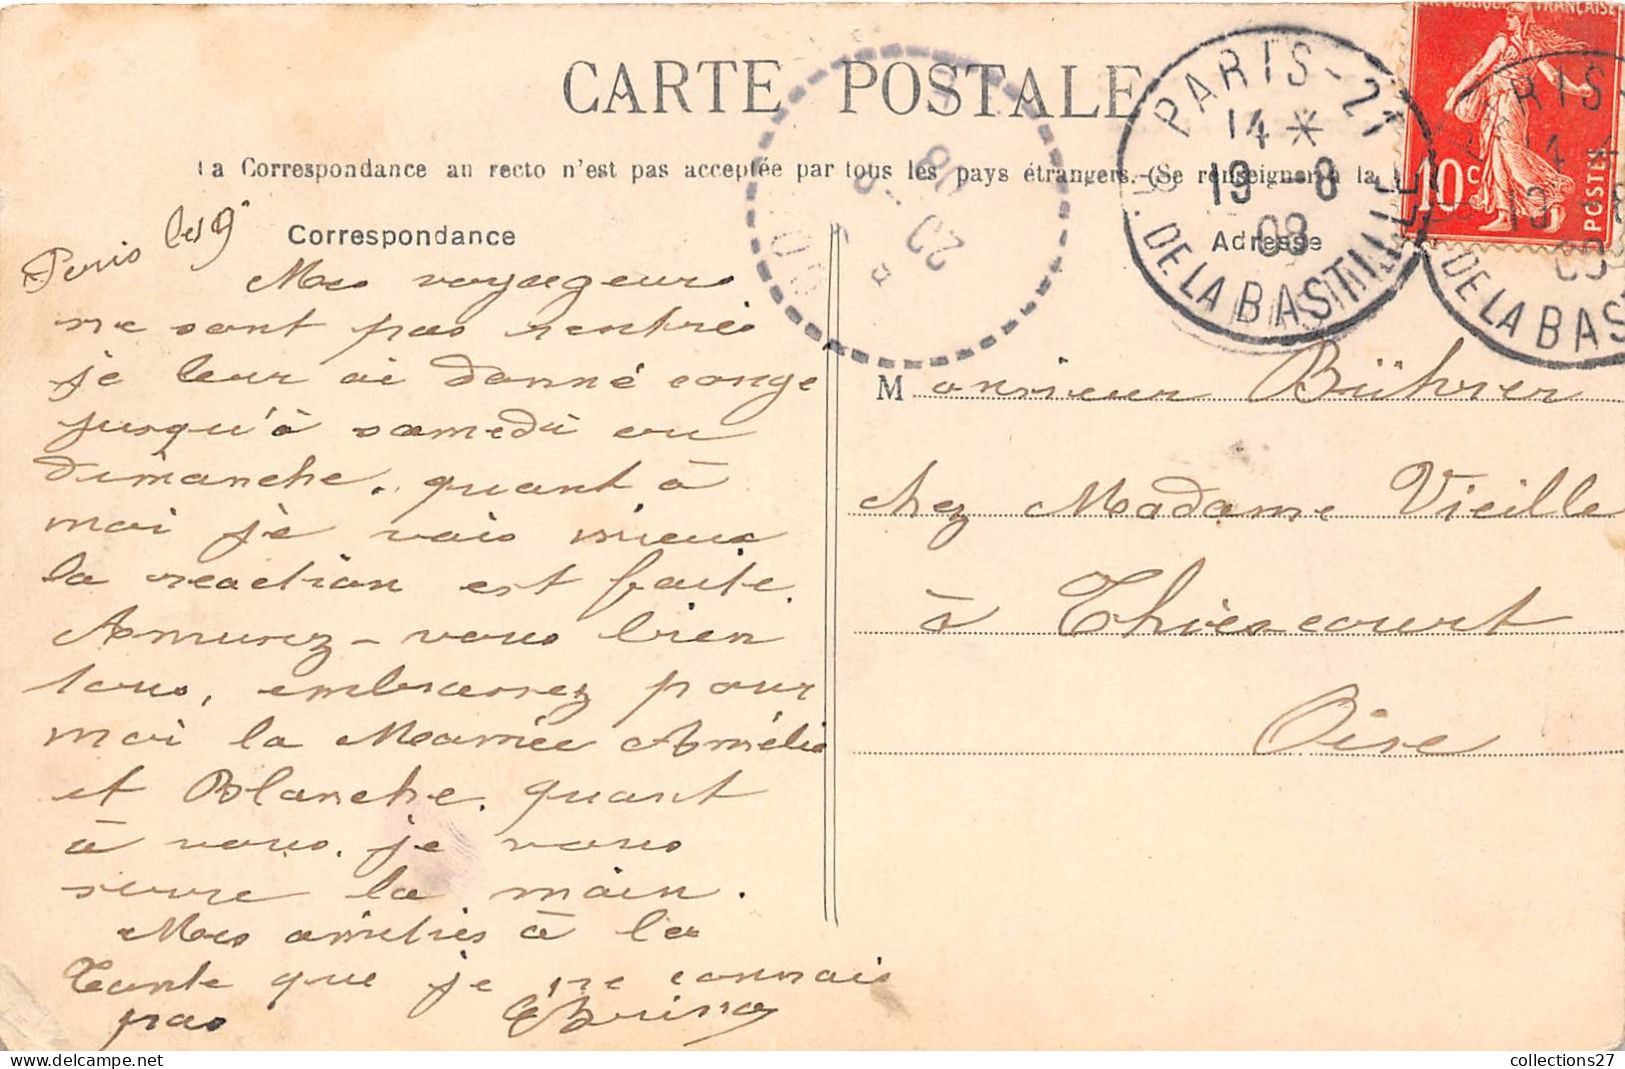 CARTE POSTALE
La Correspondance au recto n'est pas acceptée par tous les pays étrangers.-(Se renseigner à la
Correspondance
Adresse
PARIS-21
14*
19-8
08
R. DE LA BASTILLE
RÉPUBLIQUE FRANÇAISE
10c
POSTES
RIS
14
19 8
DE LA BAS
20-8
08
OISE
Paris le 19
Mes voyageurs
ne sont pas rentrés
je leur ai donné conge
jusqu'à samedi ou
dimanche. quant à
moi je vais mieux
la reaction est faite.
Amusez-vous bien
tous, embrassez pour
moi la Mariée Amélie
et Blanche. quant
à vous. je vous
serre la main.
Mes amitiés à la
Tante que je ne connais
pas
Monsieur Bührer
chez Madame Vieille
à Thiescourt
Oise
collections27